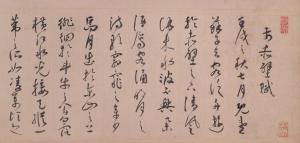 前赤壁賦
壬戌之秋七月既望
蘇子與客泛舟遊
於赤壁之下清風
徐來水波不興舉
酒屬客誦明月之
詩歌窈窕之章少
焉月出於東山之上
徘徊於斗牛之間白露
橫江水光接天縱一
葦之所如凌萬頃之